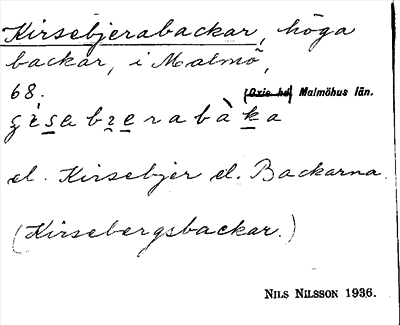 Kirsebjerabackar, höga
backar, i Malmö,
68. (Oxie hd) Malmöhus län.
el. Kirsebjer el. Backarna.
(Kirsebergsbackar.)
NILS NILSSON 1936.